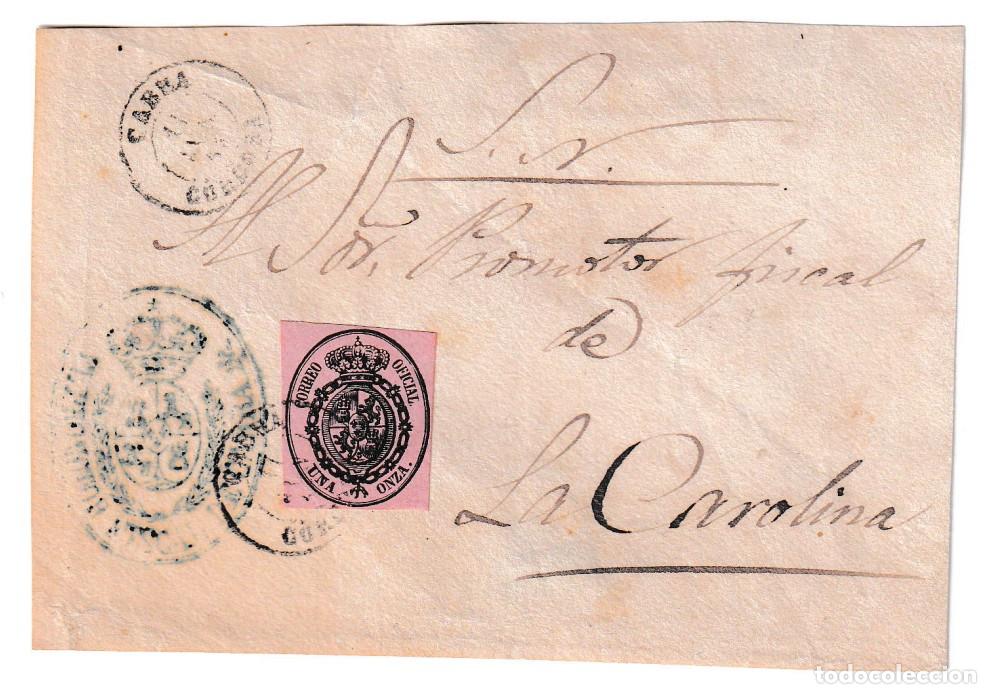 CABRA
CORDOBA
S. N.
Al Sõr. Promotor fiscal
de
La Carolina
CORREO OFICIAL
UNA ONZA.
CABRA
todocoleccion